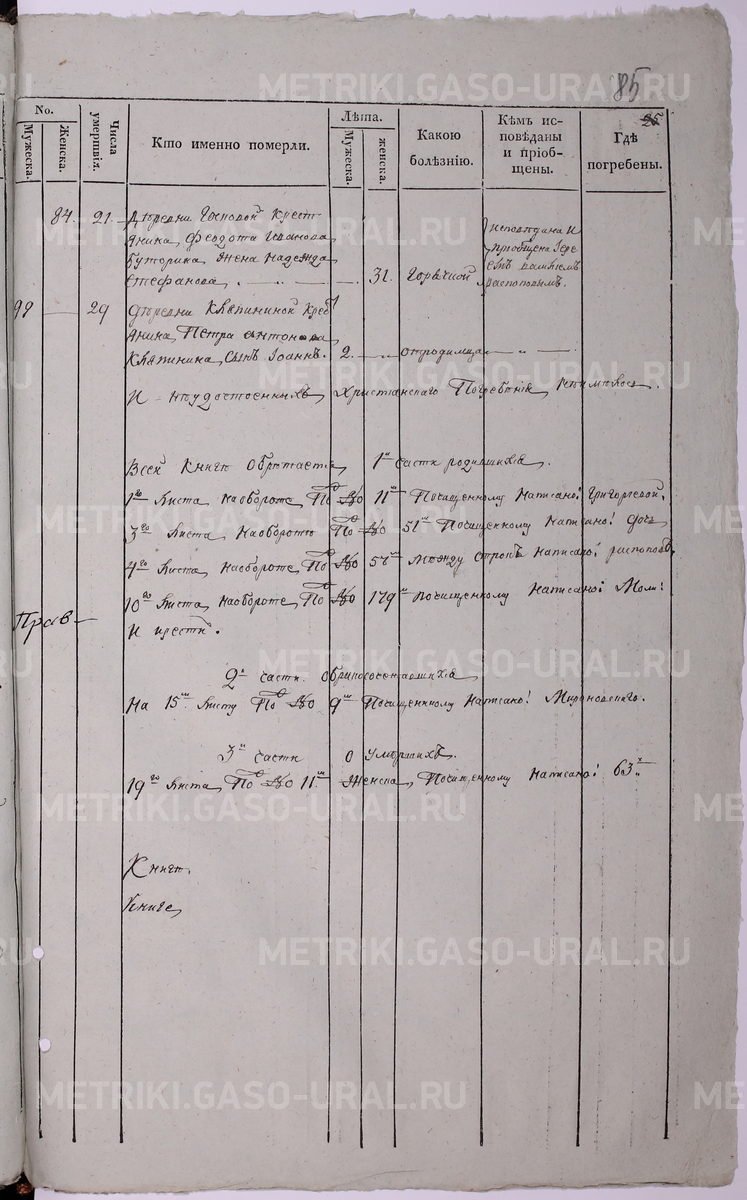 85
25
No.
Мужеска.
Женска.
Числа умертвія.
Кто именно померли.
Лѣта.
Мужеска.
женска.
Какою болѣзнію.
Кѣмъ исповѣданы и пріобщены.
Гдѣ погребены.
84. 21. Деревни Госповой Крестьянина Феодота Иванова
Буторина Жена Надежда
Стефанова 31. Горячкой
исповѣдана и
приобщена Iере
емъ
распоповымъ.
99 29 деревни Кляпининой Крес
янина Петра Антонова
Кляпинина, Сынъ Iоаннъ. 2. отродимца
И неудостоенныхъ Христианскаго Погребенія неимѣлось.
Всей Книги обрѣтается 1й части родившихся.
1го Листа наоборотѣ По №о 11м Почищенному Написано: Григорьевой.
3го Листа Наоборотѣ По №о 51м Почищенному Написано: дочь
4го Листа наоборотѣ По №о 57м Между строкъ Написано: распоповъ.
10го Листа наоборотѣ По №о 179м почищенному Написано:
И крестн.
Прав
2й части. О бракосочетавшихся
На 15м Листу По №о 9м Почищенному Написано: Мироновскаго.
3й части О умершихъ.
19го Листа По №о 11м Женска, Почищенному Написано: 63х
Книги.
Книге
METRIKI.GASO-URAL.RU